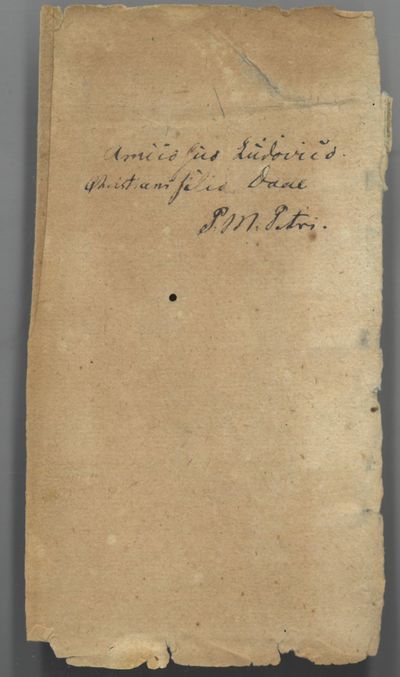 Amico suo Ludovico.
Christiani filio Daae
P. M. Petri.